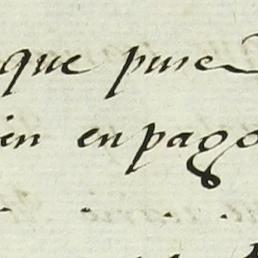 que puse
en en pago